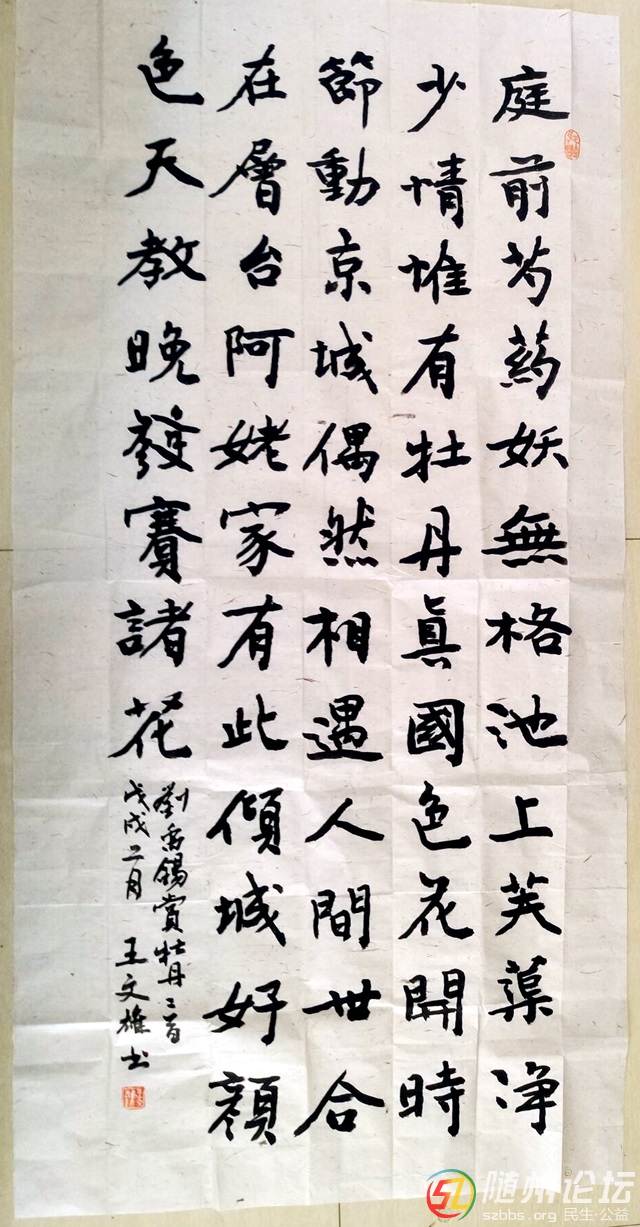 庭前芍药妖無格池上芙蕖浄
少情惟有牡丹真國色花開時
節動京城偶然相遇人間世合
在層台阿姥家有此傾城好顏
色天教晚發賽諸花
劉禹錫賞牡丹二首
戊戌二月 王文雄书
随州论坛
szbbs.org 民生·公益